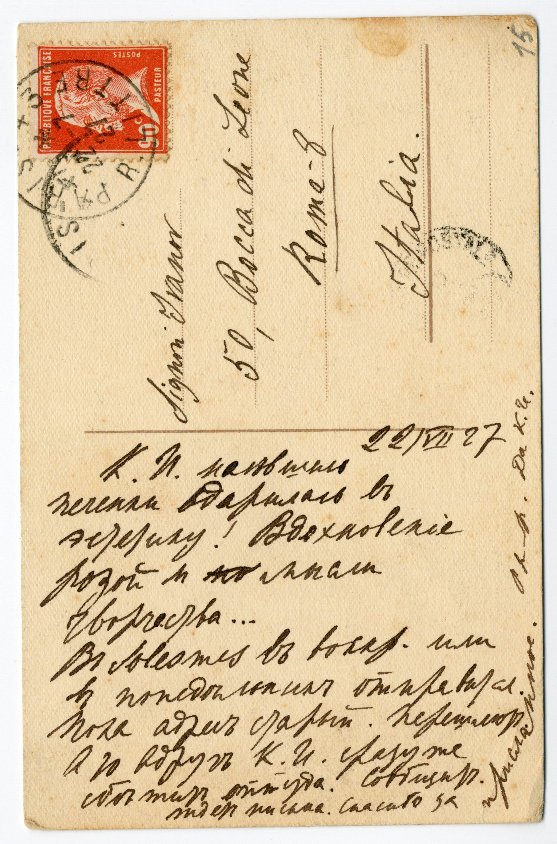 15
REPUBLIQUE FRANÇAISE
POSTES
PASTEUR
90
PARIS
Signori Ivanov
50, Bocca di Leone
Roma - 8
Italia.
22/VII 27
К. И. наѣвшись
печенки ударилась въ
эстетику! Вдохновеніе
розой и мысли
творчества...
Въ Solesmes въ воскр. или
въ понедѣльникъ отправл.
Пока адресъ старый.
А то вдругъ К. И. сразу же
оттуда. Сообщимъ.
письма. Спасибо за
присланное.
К. И.